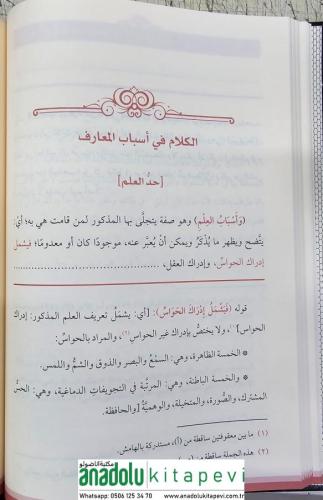 الكلام في أسباب المعارف
[حدُّ العلم]
(وَأَسْبَابُ العِلْمِ) وهو صفة يتجلَّى بها المذكور لمن قامت هي به؛ أيْ:
يتَّضح ويظهر ما يُذْكَرُ ويمكن أنْ يُعبَّر عنه، موجودًا كان أو معدومًا؛ فيشمل
إدراك الحواسِّ، وإدراك العقل،
قوله (فَيَشْمَلُ إِدْرَاكَ الحَوَاسِّ): [أي: يشمل تعريف العلم المذكور: إدراك
الحواس](١)، ولا يختصُّ بإدراك غير الحواس(٢)، والمراد بالحواسِّ:
* الخمسة الظاهرة، وهي: السمْعُ والبصر والذوق والشمُّ واللمس.
* والخمسة الباطنة، وهي: المرتَّبة في التجويفات الدماغية، وهي: الحسُّ
المشترك، والصُّورة، والمتخيلة، والوهميَّة [والحافظة.
(١) ما بين معقوفتين ساقطة من (أ)، مستدركة بالهامش.
(٢) هذه الجملة ساقطة من
مكتبة اناضولو
anadolu kitapevi
Whatsapp: 0506 125 34 70 - www.anadolukitapevi.com